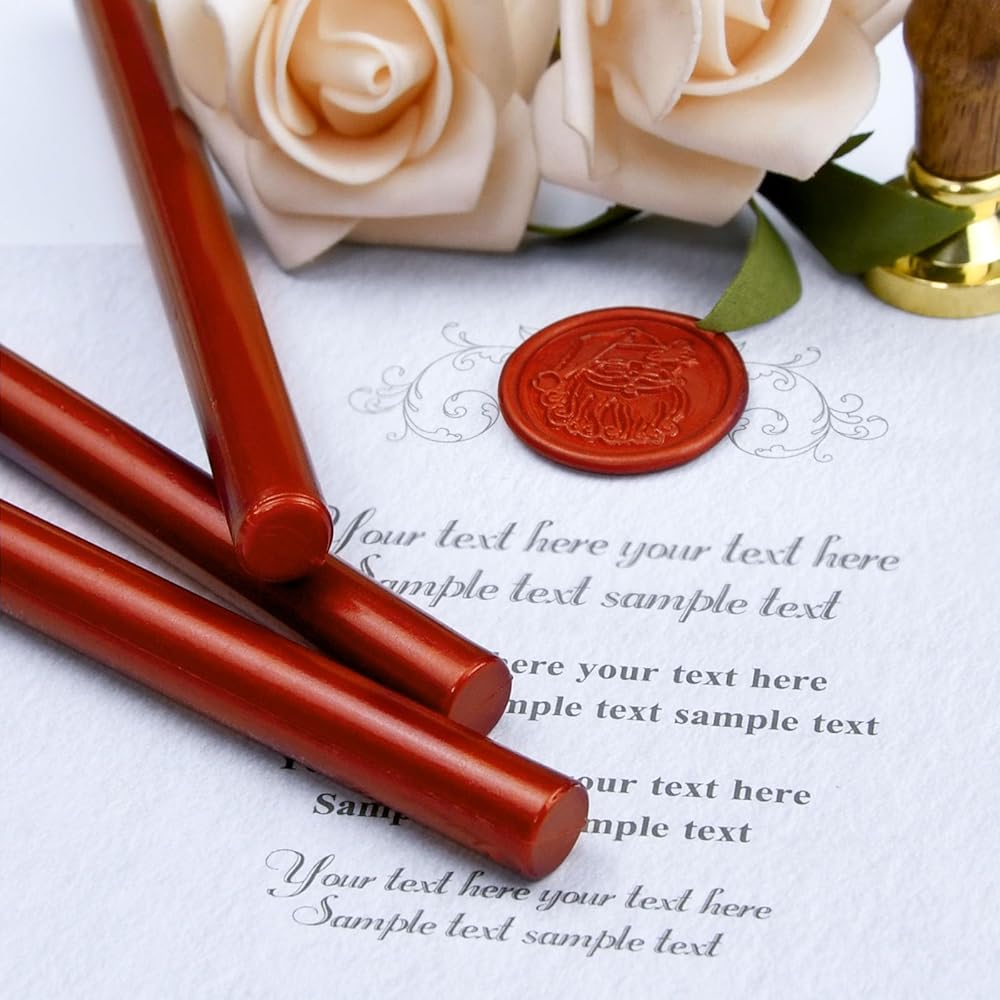 Your text here your text here
Sample text sample text
here your text here
text sample text
your text here
Sample text
Your text here your text here
Sample text sample text